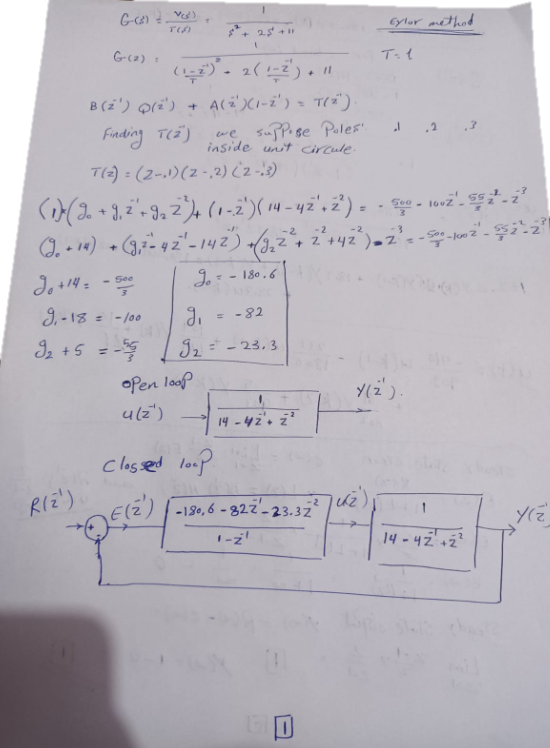 G(s) = Y(s)/T(s) = 1/(s² + 2s + 11) Eylor method
G(z) = 1/(((1-z⁻¹)/T)² + 2((1-z⁻¹)/T) + 11) T=1
B(z⁻¹) Q(z⁻¹) + A(z⁻¹)(1-z⁻¹) = T(z⁻¹)
Finding T(z⁻¹) we suppose Poles: .1 .2 .3
inside unit circule.
T(z) = (z-.1)(z-.2)(z-.3)
(1)*(g₀ + g₁z⁻¹ + g₂z⁻²) + (1-z⁻¹)(14-4z⁻¹+z⁻²) = -500/3 - 100z⁻¹ - 55/3 z⁻² - z⁻³
(g₀+14) + (g₁z⁻¹ - 4z⁻¹ - 14z⁻¹) + (g₂z⁻² + z⁻² + 4z⁻²) - z⁻³ = -500/3 - 100z⁻¹ - 55/3 z⁻² - z⁻³
g₀+14 = -500/3 g₀ = -180.6
g₁-18 = -100 g₁ = -82
g₂+5 = -55/3 g₂ = -23.3
open loop
u(z⁻¹) 1/(14-4z⁻¹+z⁻²) Y(z⁻¹).
Closed loop
R(z⁻¹) + E(z⁻¹) (-180.6-82z⁻¹-23.3z⁻²)/(1-z⁻¹) u(z⁻¹) 1/(14-4z⁻¹+z⁻²) Y(z⁻¹
1